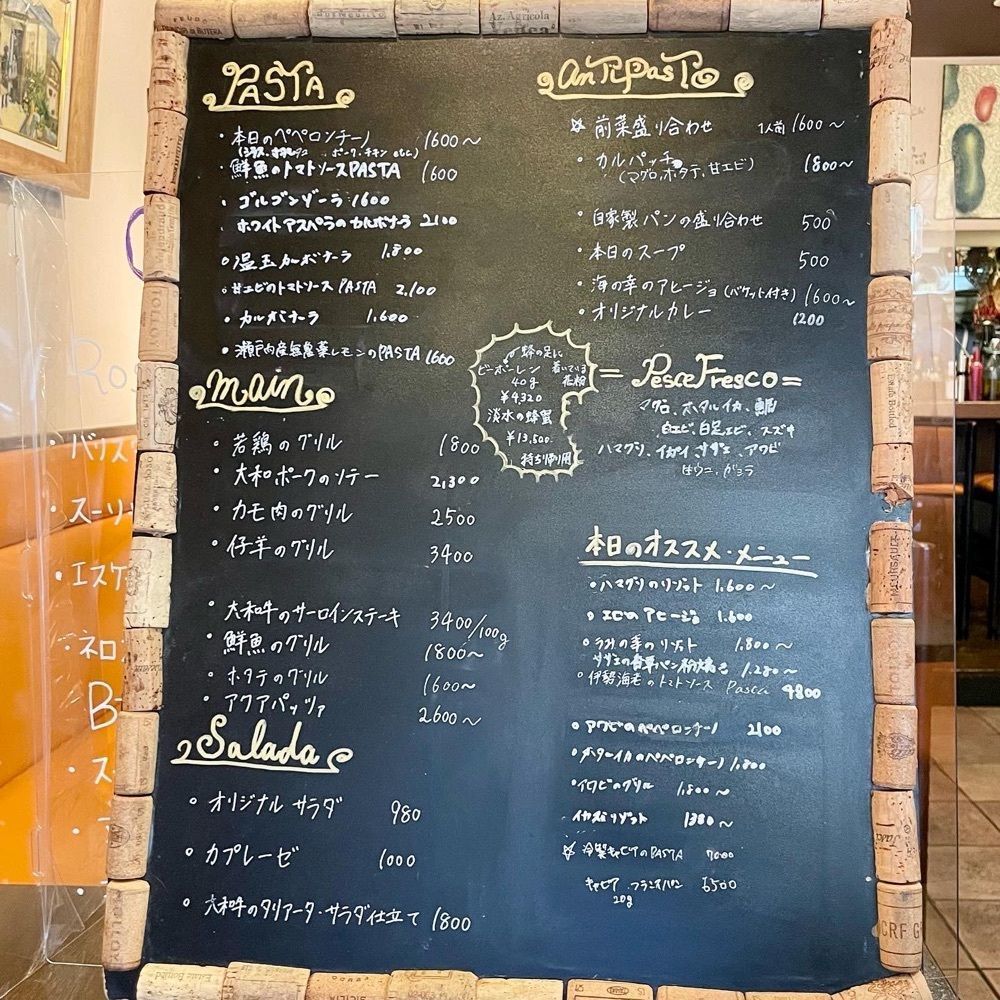 PASTA
・本日のペペロンチーノ 1600～
ポーク、チキン etc)
・鮮魚のトマトソースPASTA 1600
・ゴルゴンゾーラ 1600
・ホワイトアスペラのカルボナーラ 2100
・温玉カルボナーラ 1.800
・甘エビのトマトソース PASTA 2,100
・カルボナーラ 1.600
・瀬戸内産無農薬レモンのPASTA 1600
main
・若鶏のグリル 1800
・大和ポークのソテー 2,300
・カモ肉のグリル 2500
・仔羊のグリル 3400
・大和牛のサーロインステーキ 3400/100g
・鮮魚のグリル 1800～
・ホタテのグリル 1600～
・アクアパッツァ 2600～
Salada
・オリジナル サラダ 980
・カプレーゼ 1000
・大和牛のタリアータ・サラダ仕立て 1800
antipasto
☆ 前菜盛り合わせ 1人前 1600～
・カルパッチョ 1800～
(マグロ、ホタテ、甘エビ)
・自家製パンの盛り合わせ 500
・本日のスープ 500
・海の幸のアヒージョ(バケット付き) 1600～
・オリジナルカレー 1200
蜂の足に
着いている
花粉
ビーポーレン
40g
¥4320
淡水の蜂蜜
¥13,500
持ち帰り用
=PesceFresco=
マグロ、ホタルイカ、鯛
白エビ、白足エビ、スズキ
ハマグリ、イカ サザエ、アワビ
生ウニ、
本日のオススメ・メニュー
・ハマグリのリゾット 1.600～
・エビのアヒージョ 1.600
・うみの幸のリゾット 1.800～
サザエの香草パン粉焼き 1.280～
・伊勢海老のトマトソース Pasta 4800
・アワビのペペロンチーノ 2100
・ホタルイカのペペロンチーノ 1.800
・イワシのグリル 1.800～
リゾット 1380～
☆ 冷製キャビアのPASTA 7000
キャビア 6500
20g